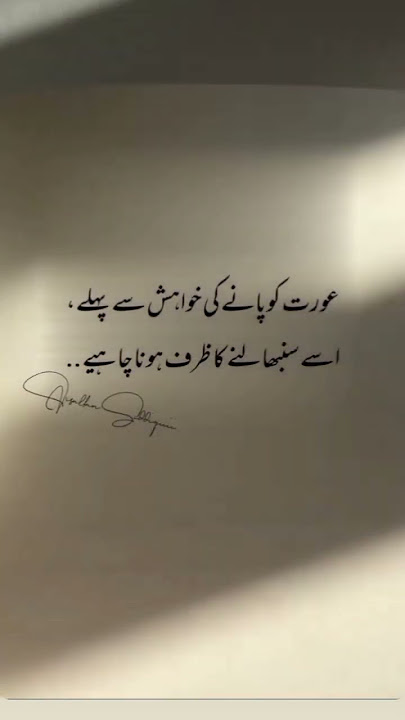 عورت کو پانے کی خواہش سے پہلے ،
اسے سنبھالنے کا ظرف ہونا چاہیے ..